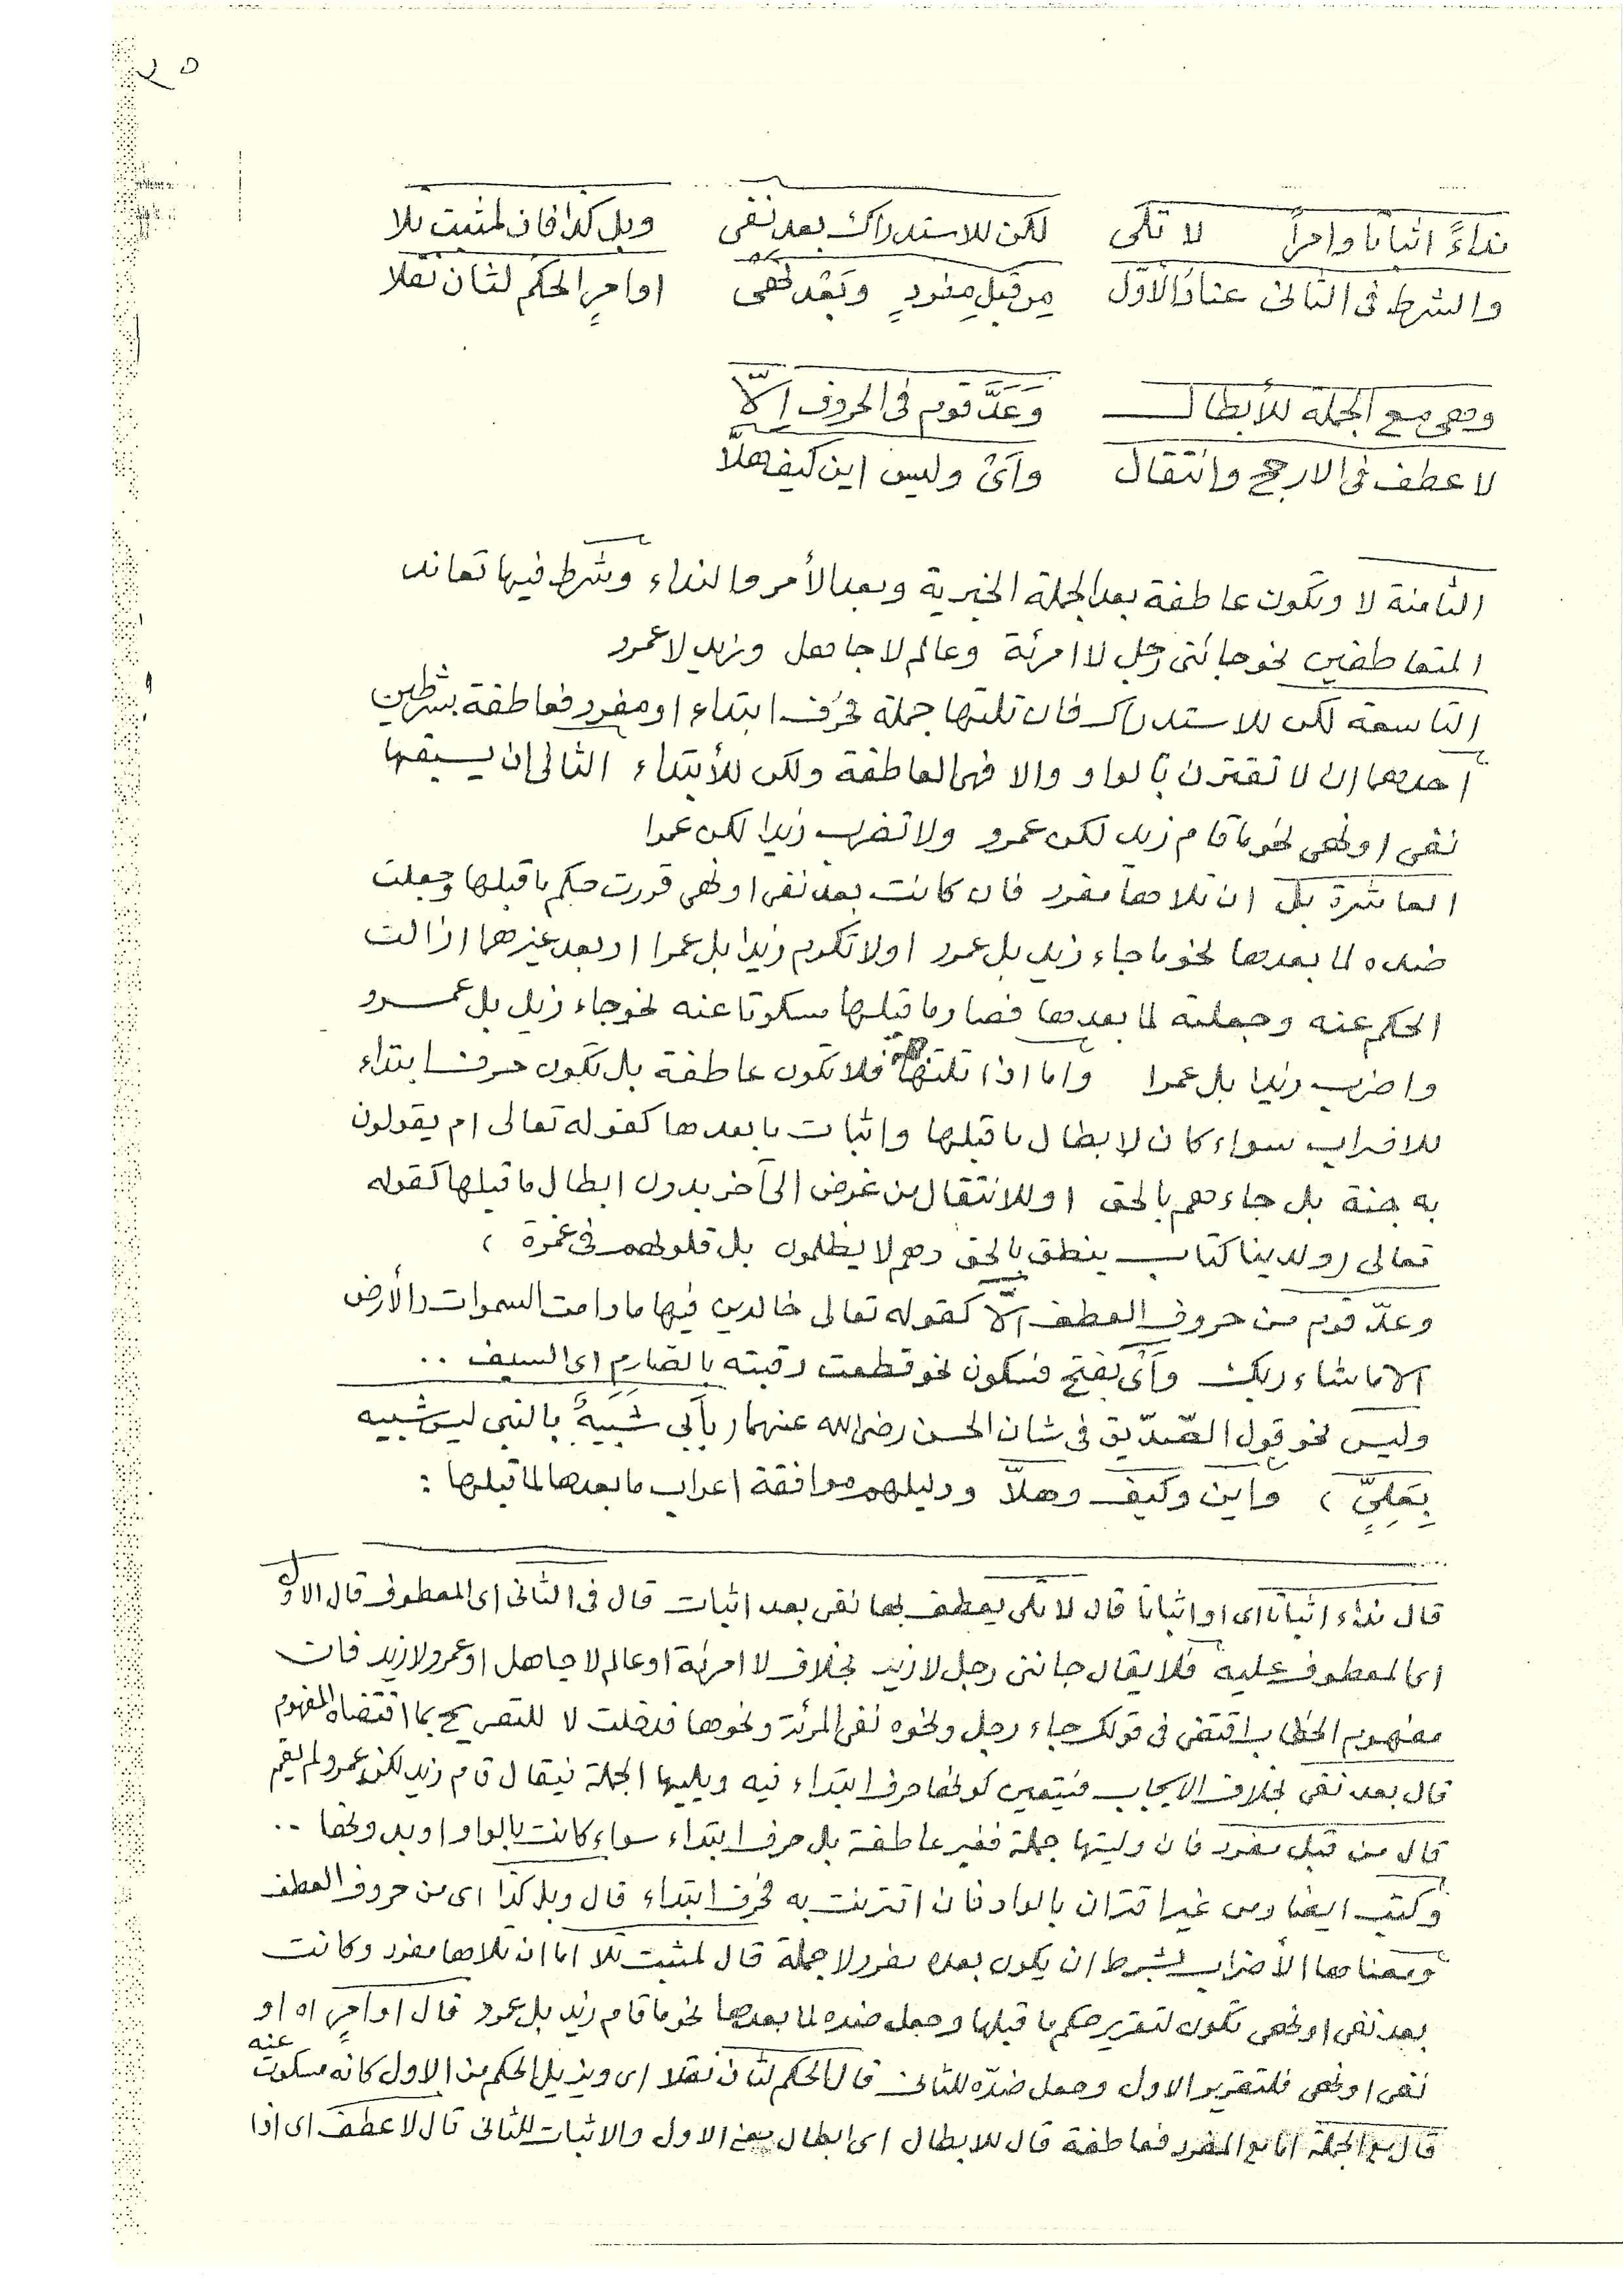 ٢٥
نداءً اثباتا وامراً لا تلى لكن للاستدراك بعد نفى وبل كذا فان لمثبت تلا
والشرط فى الثانى عناد الاوّل من قبل مفردٍ وبَعْد نهى او امرٍ الحكم لثان نقلا
وهى مع الجملة للأبطال وَعَدَّ قوم فى الحروف إلّا
لا عطف فى الارجح وانتقال وآى وليس اين كيف هلّا
الثامنة لا وتكون عاطفة بعد الجملة الخبرية وبعد الأمر والنداء وشرط فيها تعاند
المتعاطفين نحو جائنى رجل لا امرئة وعالم لا جاهل وزيد لا عمرو
التاسعة لكن للاستدراك فان تلتها جملة فحرف ابتداء او مفرد فعاطفة بشرطين
احدهما ان لا تقترن بالواو والا فهى العاطفة ولكن للأبتداء الثانى ان يسبقها
نفى او نهى نحو ما قام زيد لكن عمرو ولا تضرب زيدا لكن عمرا
العاشرة بل ان تلاها مفرد فان كانت بعد نفى او نهى قررت حكم ما قبلها وجعلت
ضده لما بعدها نحو ما جاء زيد بل عمرو او لا تكرم زيدا بل عمرا او بعد غيرهما ازالت
الحكم عنه وجعلته لما بعدها فصار ما قبلها مسكوتا عنه نحو جاء زيد بل عمرو
واضرب زيدا بل عمرا واما اذا تلتها فلا تكون عاطفة بل تكون حرف ابتداء
للاضراب سواء كان لابطال ما قبلها واثبات ما بعدها كقوله تعالى ام يقولون
به جنة بل جاءهم بالحق او للانتقال من غرض الى آخر بدون ابطال ما قبلها كقوله
تعالى (ولدينا كتاب ينطق بالحق وهم لا يظلمون بل قلوبهم فى غمرة )
وعدّ قوم من حروف العطف الّا كقوله تعالى خالدين فيها ما دامت السموات والأرض
الا ما شاء ربك وآى بفتح فسكون نحو قطعت رقبته بالصارم اى السيف ..
وليس نحو قول الصّدّيق فى شان الحسن رضى الله عنهما ( بأبى شَبِيَهٌ بالنبى ليس شبيه
بِعَلِيٍّ ) واين وكيف وهلاّ ودليلهم موافقة اعراب ما بعدها لما قبلها :
قال نداء اثباتا اى او اثباتا قال لا تلى يعطف بها نفى بعد اثبات قال فى الثانى اى المعطوف قال الاوّل
اى المعطوف عليه فلا يقال جائنى رجل لا زيد بخلاف لا امرئة او عالم لا جاهل او عمرو لا زيد فان
مفهوم الخطاب اقتضى فى قولك جاء رجل ونحوه نفى المرئة ونحوها فدخلت لا للتصريح بما اقتضاه المفهوم
قال بعد نفى بخلاف الايجاب فيتعين كونها حرف ابتداء فيه ويليها الجملة فيقال قام زيد لكن عمرو لم يقم
قال من قبل مفرد فان وليتها جملة فغير عاطفة بل حرف ابتداء سواء كانت بالواو او بدونها ..
وكتب ايضا ومن غير اقتران بالواو فان اقترنت به فحرف ابتداء قال وبل كذا اى من حروف العطف
ومعناها الأضراب بشرط ان يكون بعده مفرد لا جملة قال لمثبت تلا اما ان تلاها مفرد وكانت
بعد نفى او نهى تكون لتقرير حكم ما قبلها وجعل ضده لما بعدها نحو ما قام زيد بل عمرو قال او امرٍ اه او
نفى او نهى فلتقرير الاول وجعل ضدّه للثانى قال الحكم لثان نقلا اى ويزيل الحكم من الاول كانه مسكوت عنه
قال مع الجملة اما مع المفرد فعاطفة قال للابطال اى ابطال معنى الاول والاثبات للثانى قال لا عطف اى اذا